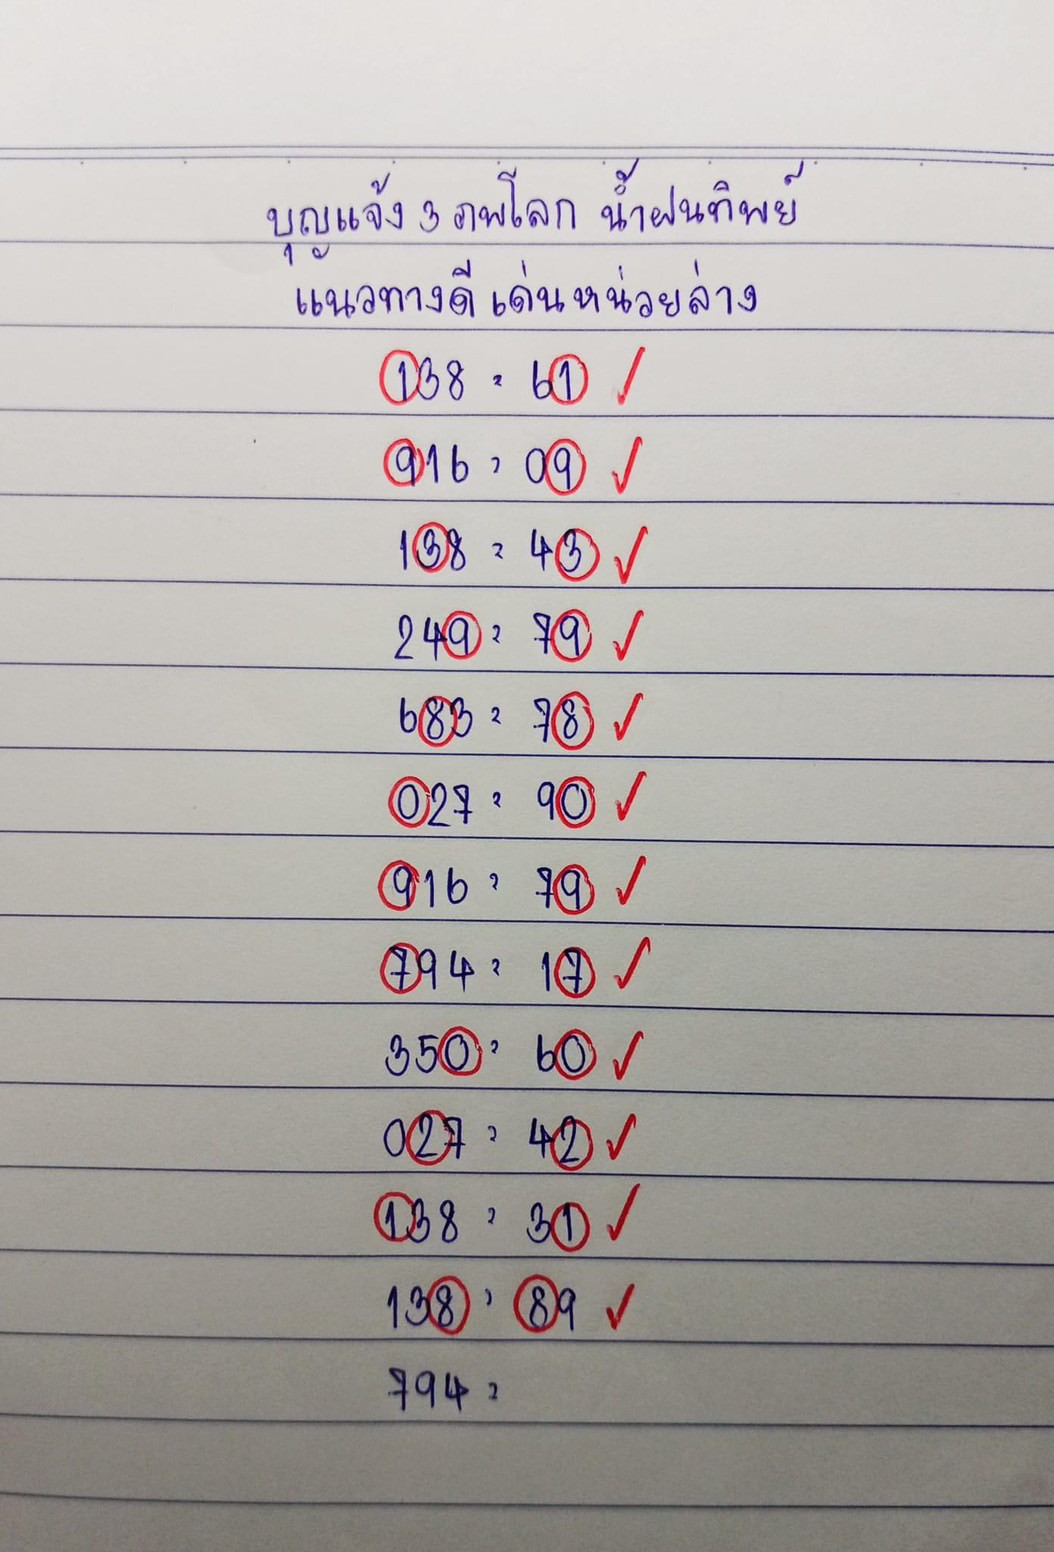 บุญแจ้ง 3 ภพโลก น้ำฝนทิพย์
แนวทางดี เด่นหน่วยล่าง
138 = 61 ✓
916 = 09 ✓
138 = 43 ✓
249 = 79 ✓
683 = 78 ✓
027 = 90 ✓
916 = 79 ✓
794 = 17 ✓
350 = 60 ✓
027 = 42 ✓
138 = 31 ✓
138 = 89 ✓
794 =